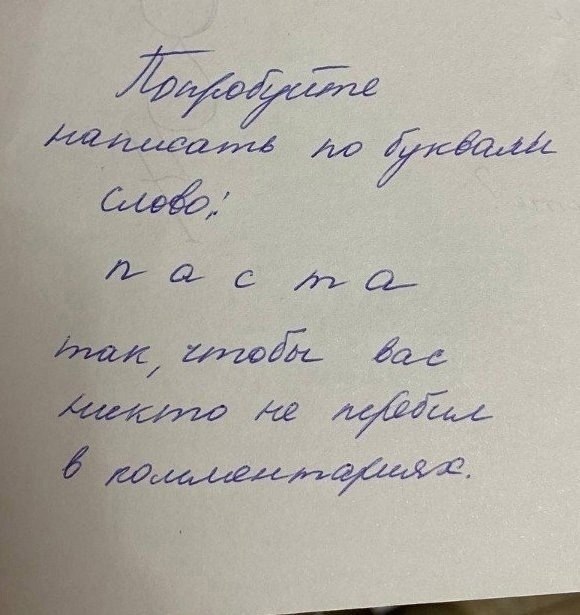 Попробуйте
написать по буквам
слово:
п а с т а
так, чтобы вас
никто не перебил
в комментариях.